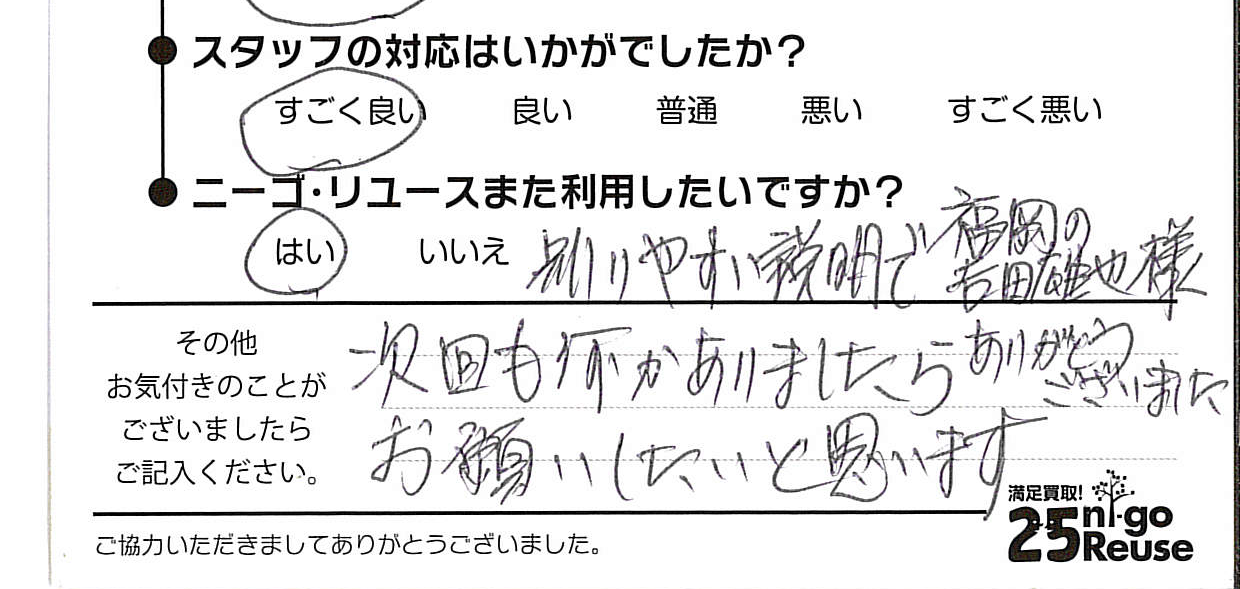 スタッフの対応はいかがでしたか?
すごく良い 良い 普通 悪い すごく悪い
ニーゴ・リユースまた利用したいですか?
はい いいえ
別りやすい説明で
福岡の
吉田雄也様
その他
お気付きのことが
ございましたら
ご記入ください。
次回も何かありましたら
お願いしたいと思います
ありがとう
ございました
満足買取!
25 ni-go
Reuse
ご協力いただきましてありがとうございました。